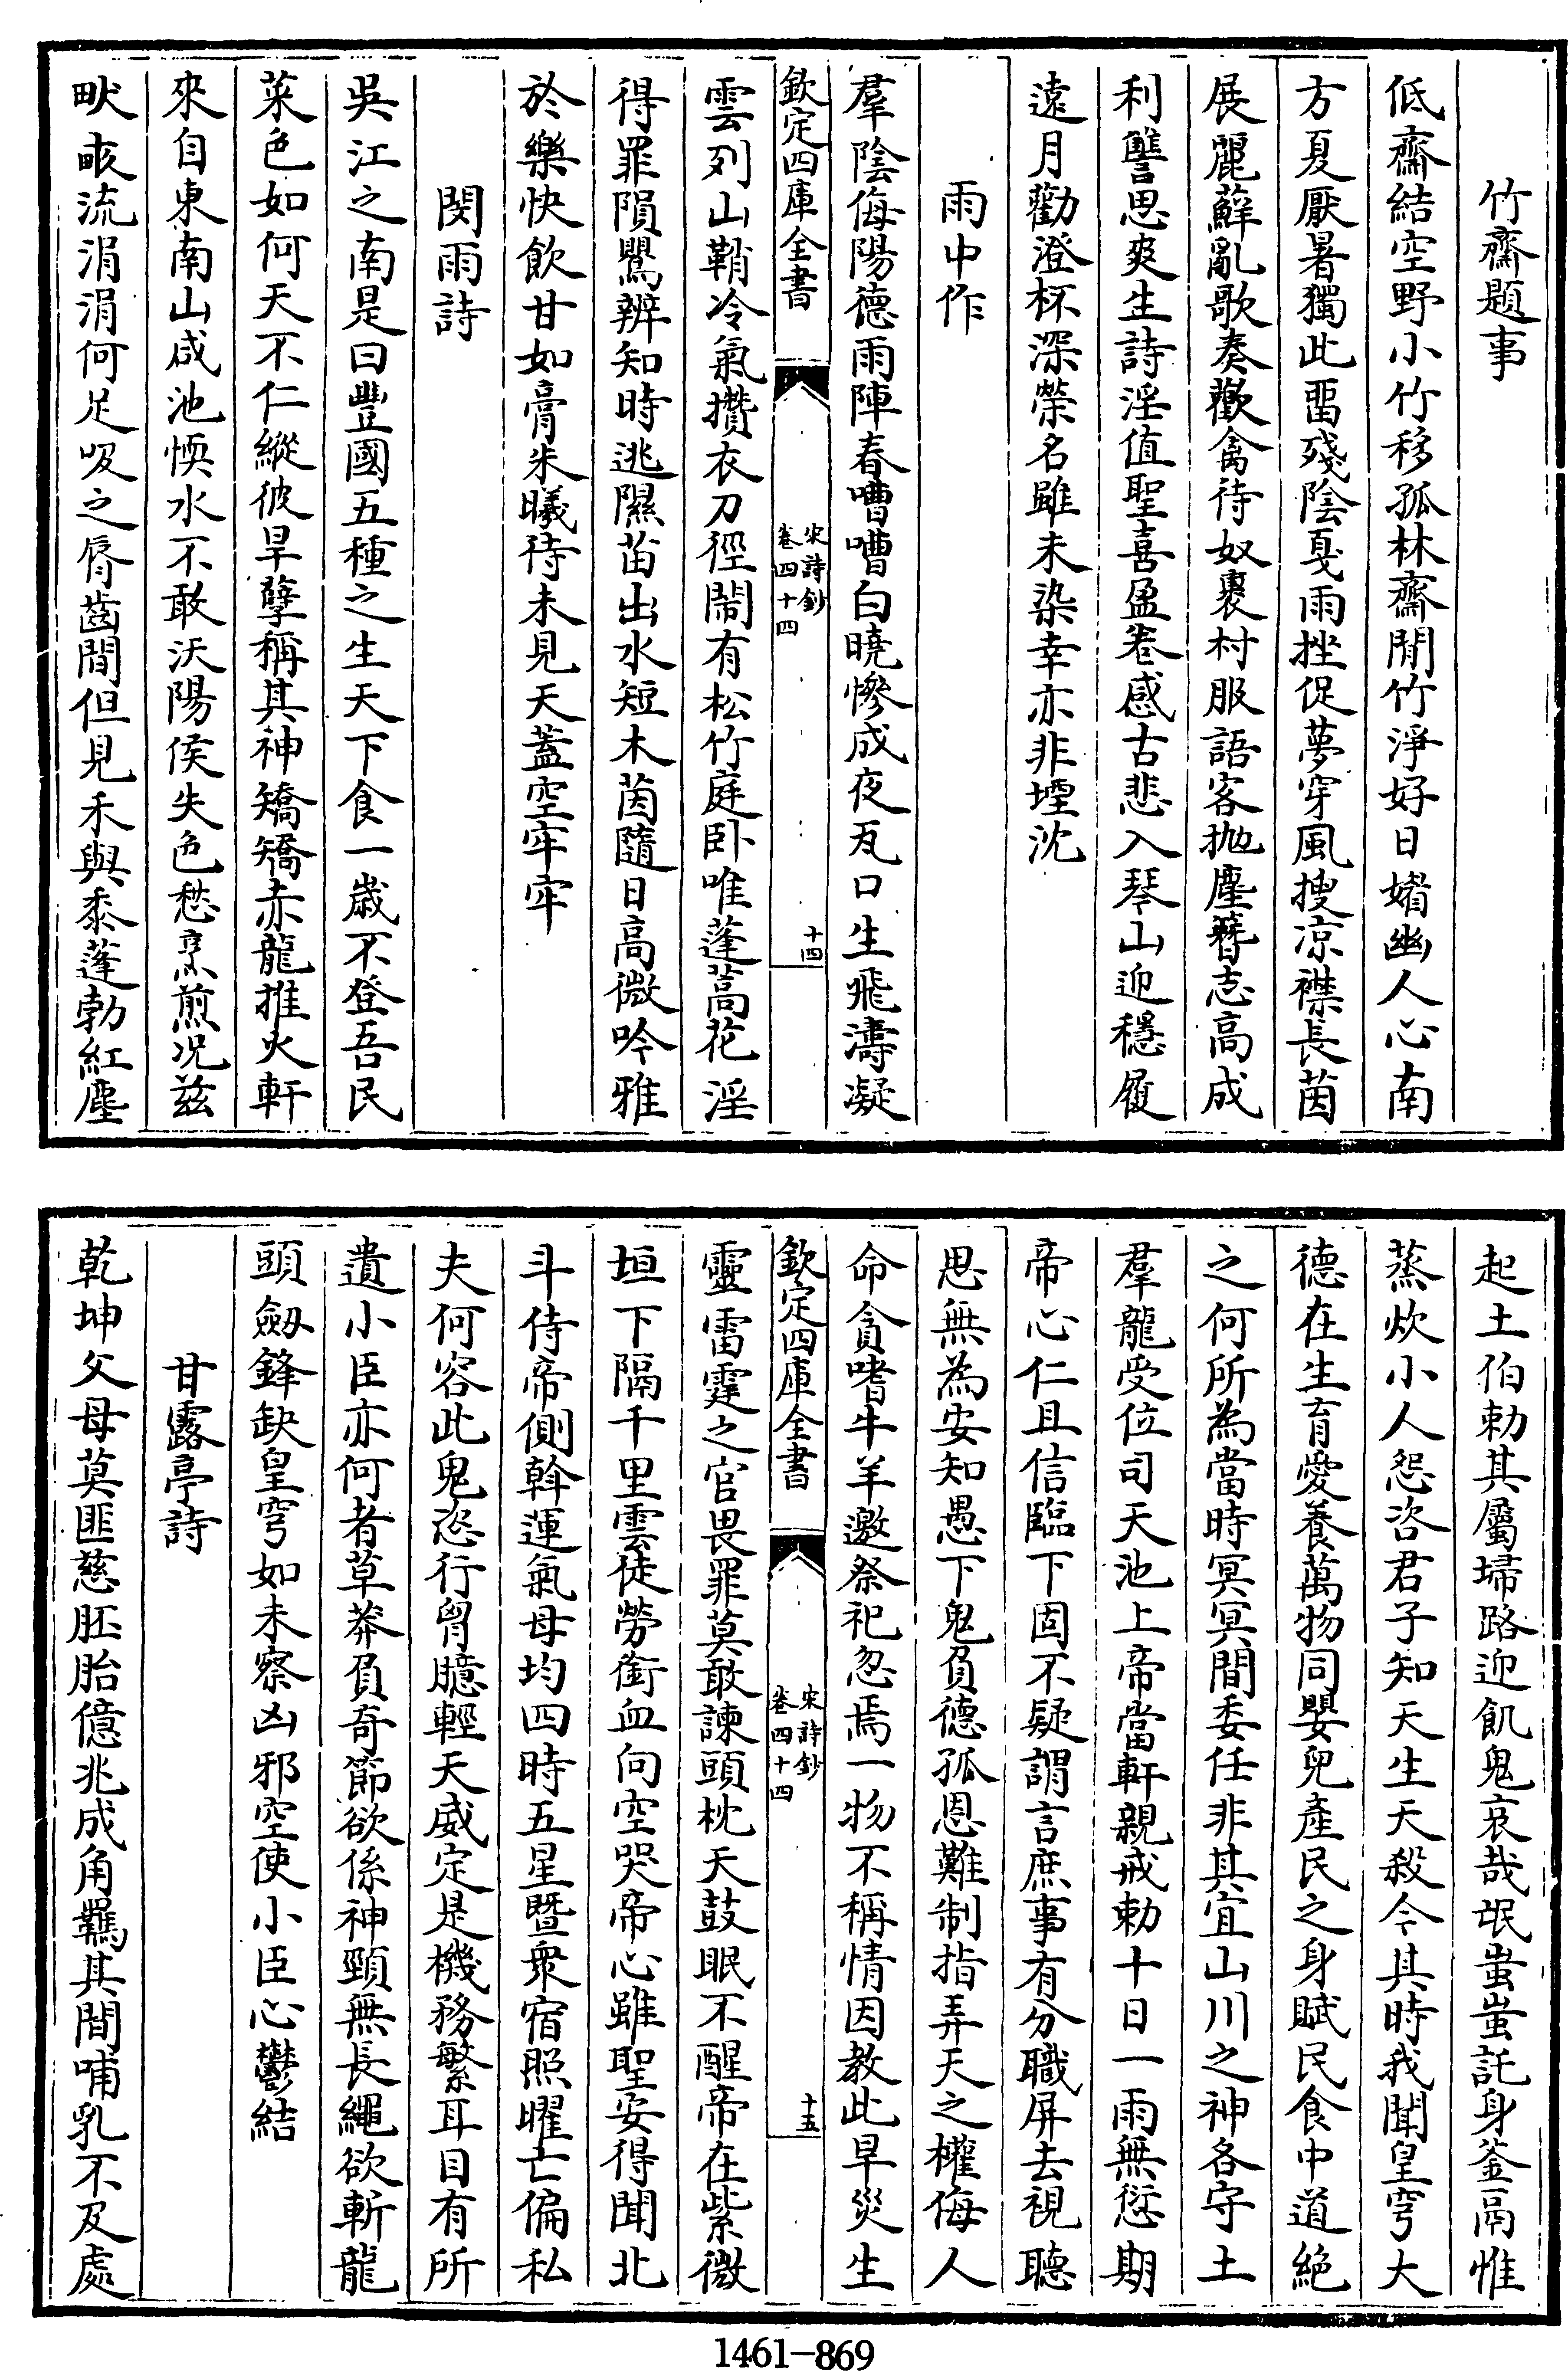 竹齋題事
低齋結空野小竹移孤林齋閒竹淨好日媘幽人心南
方夏厭暑獨此畱殘陰戞雨挫促夢穿風搜凉襟長茵
展麗蘚亂歌奏歡禽待奴褁村服語客拋塵簪志高成
利讐思爽生詩淫值聖喜盈卷感古悲入琴山迎穩屐
遠月勸澄杯深榮名雖未染幸亦非堙沈
雨中作
羣陰侮陽德雨陣春嘈嘈白曉慘成夜瓦口生飛濤凝
欽定四庫全書
宋詩鈔
卷四十四
十四
雲列山鞘冷氣攢衣刀徑鬧有松竹庭卧唯蓬蒿花淫
得罪隕鶯辨知時逃隰苗出水短木茵隨日高微吟雅
於樂快飲甘如膏朱曦待未見天蓋空牢牢
閔雨詩
吳江之南是曰豐國五種之生天下食一歲不登吾民
菜色如何天不仁縱彼旱孽稱其神矯矯赤龍推火軒
來自東南山咸池愞水不敢沃陽侯失色愁烹煎况兹
畎畡流涓涓何足吸之脣齒間但見禾與黍蓬勃紅塵
起土伯勅其屬埽路迎飢鬼哀哉氓蚩蚩託身釜鬲惟
蒸炊小人怨咨君子知天生天殺今其時我聞皇穹大
德在生育愛養萬物同嬰兒產民之身賦民食中道絕
之何所為當時冥冥間委任非其宜山川之神各守土
羣龍受位司天池上帝當軒親戒勅十日一雨無愆期
帝心仁且信臨下固不疑謂言庶事有分職屏去視聽
思無為安知愚下鬼負德孤恩難制指弄天之權侮人
命貪嗜牛羊邀祭祀忽焉一物不稱情因教此旱災生
欽定四庫全書
宋詩鈔
卷四十四
十五
靈雷霆之官畏罪莫敢諫頭枕天鼓眠不醒帝在紫微
垣下隔千里雲徒勞銜血向空哭帝心雖聖安得聞北
斗侍帝側斡運氣母均四時五星暨衆宿照曜亡偏私
夫何容此鬼恣行胷臆輕天威定是機務繁耳目有所
遺小臣亦何者草莽負奇節欲係神頸無長繩欲斬龍
頭劔鋒缺皇穹如未察凶邪空使小臣心鬱結
甘露亭詩
乾坤父母莫匪慈胚胎億兆成角羈其間哺乳不及處
1461-869